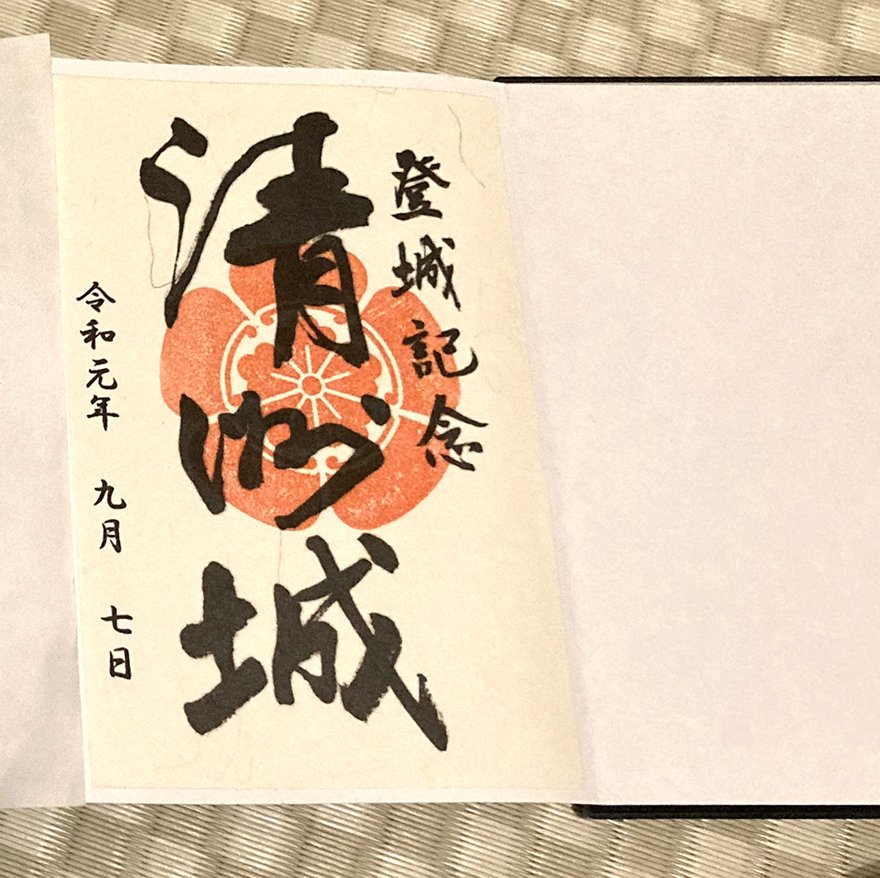 登城記念
清洲城
令和元年 九月 七日